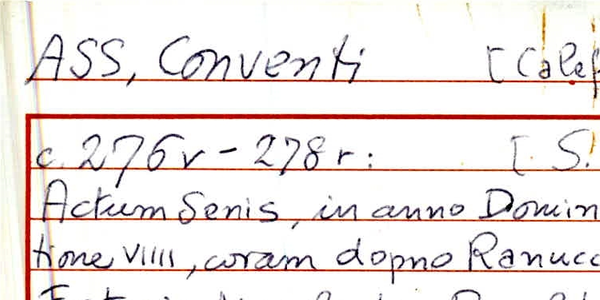 ASS, Conventi [Calef
c. 276v - 278r: [S.
Actum Senis, in anno Domin
tione VIIII, coram dopno Ranucc